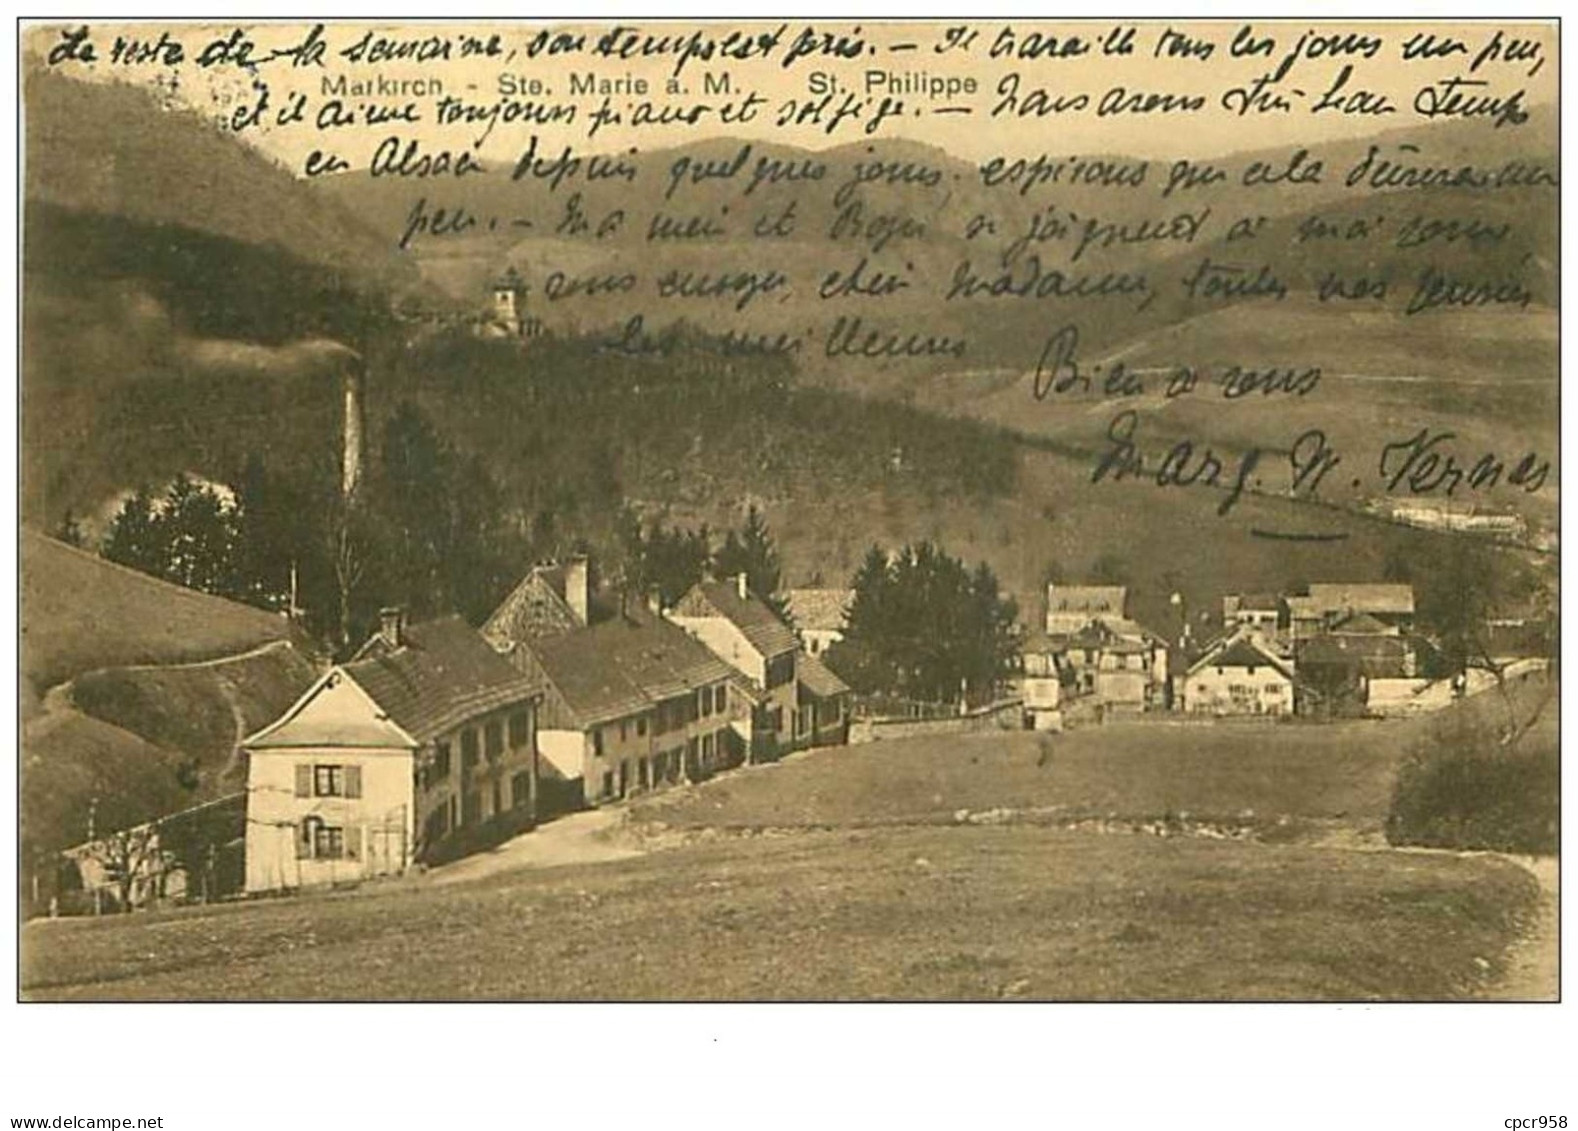 Le reste de la semaine, son temps est pris. — Il travaille tous les jours un peu,
Markirch. - Ste. Marie a. M. St. Philippe
et il aime toujours piano et solfège. — Nous avons très beau temps
en Alsace depuis quelques jours, espérons que cela durera un
peu. — Ma mère et Roger se joignent à moi pour
vous envoyer, chère Madame, toutes nos pensées
les meilleures
Bien à vous
Marg. W. Vernes
www.delcampe.net
cpcr958